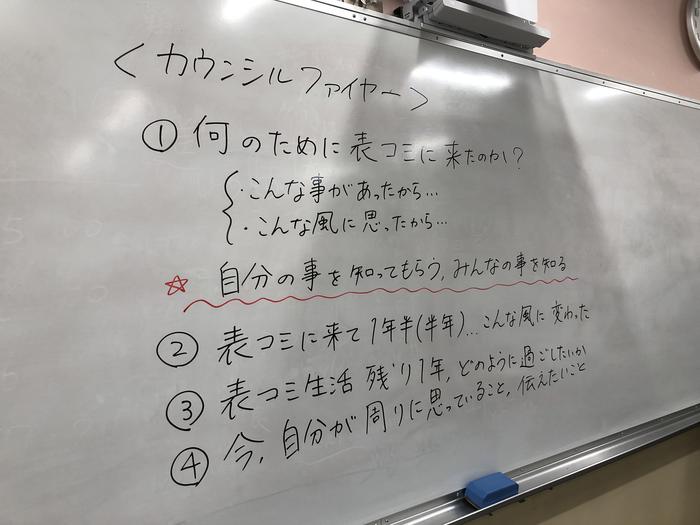 <カウンシルファイヤー>
① 何のために表コミに来たのか?
・こんな事があったから…
・こんな風に思ったから…
☆ 自分の事を知ってもらう,みんなの事を知る
② 表コミに来て1年半(半年)…こんな風に変わった
③ 表コミ生活 残り1年,どのように過ごしたいか
④ 今,自分が周りに思っていること,伝えたいこと